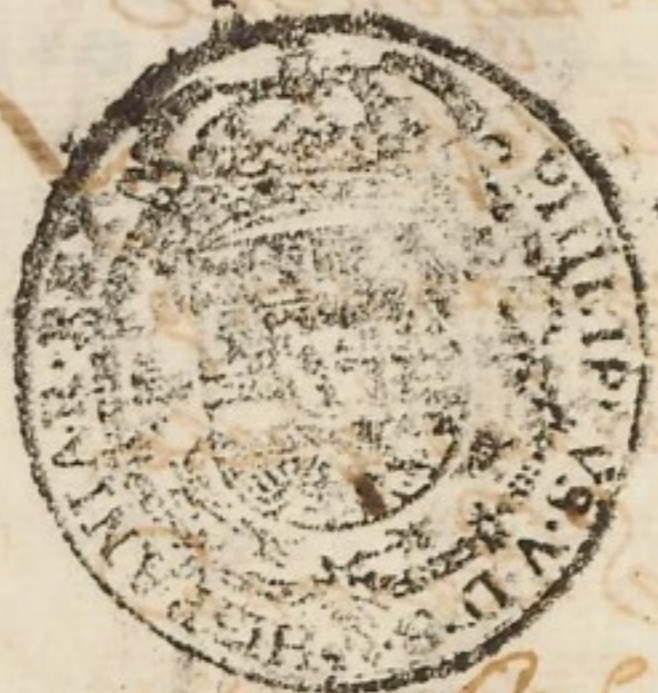 PHILIP·V9·V·D·G·HISPANIAR·REX